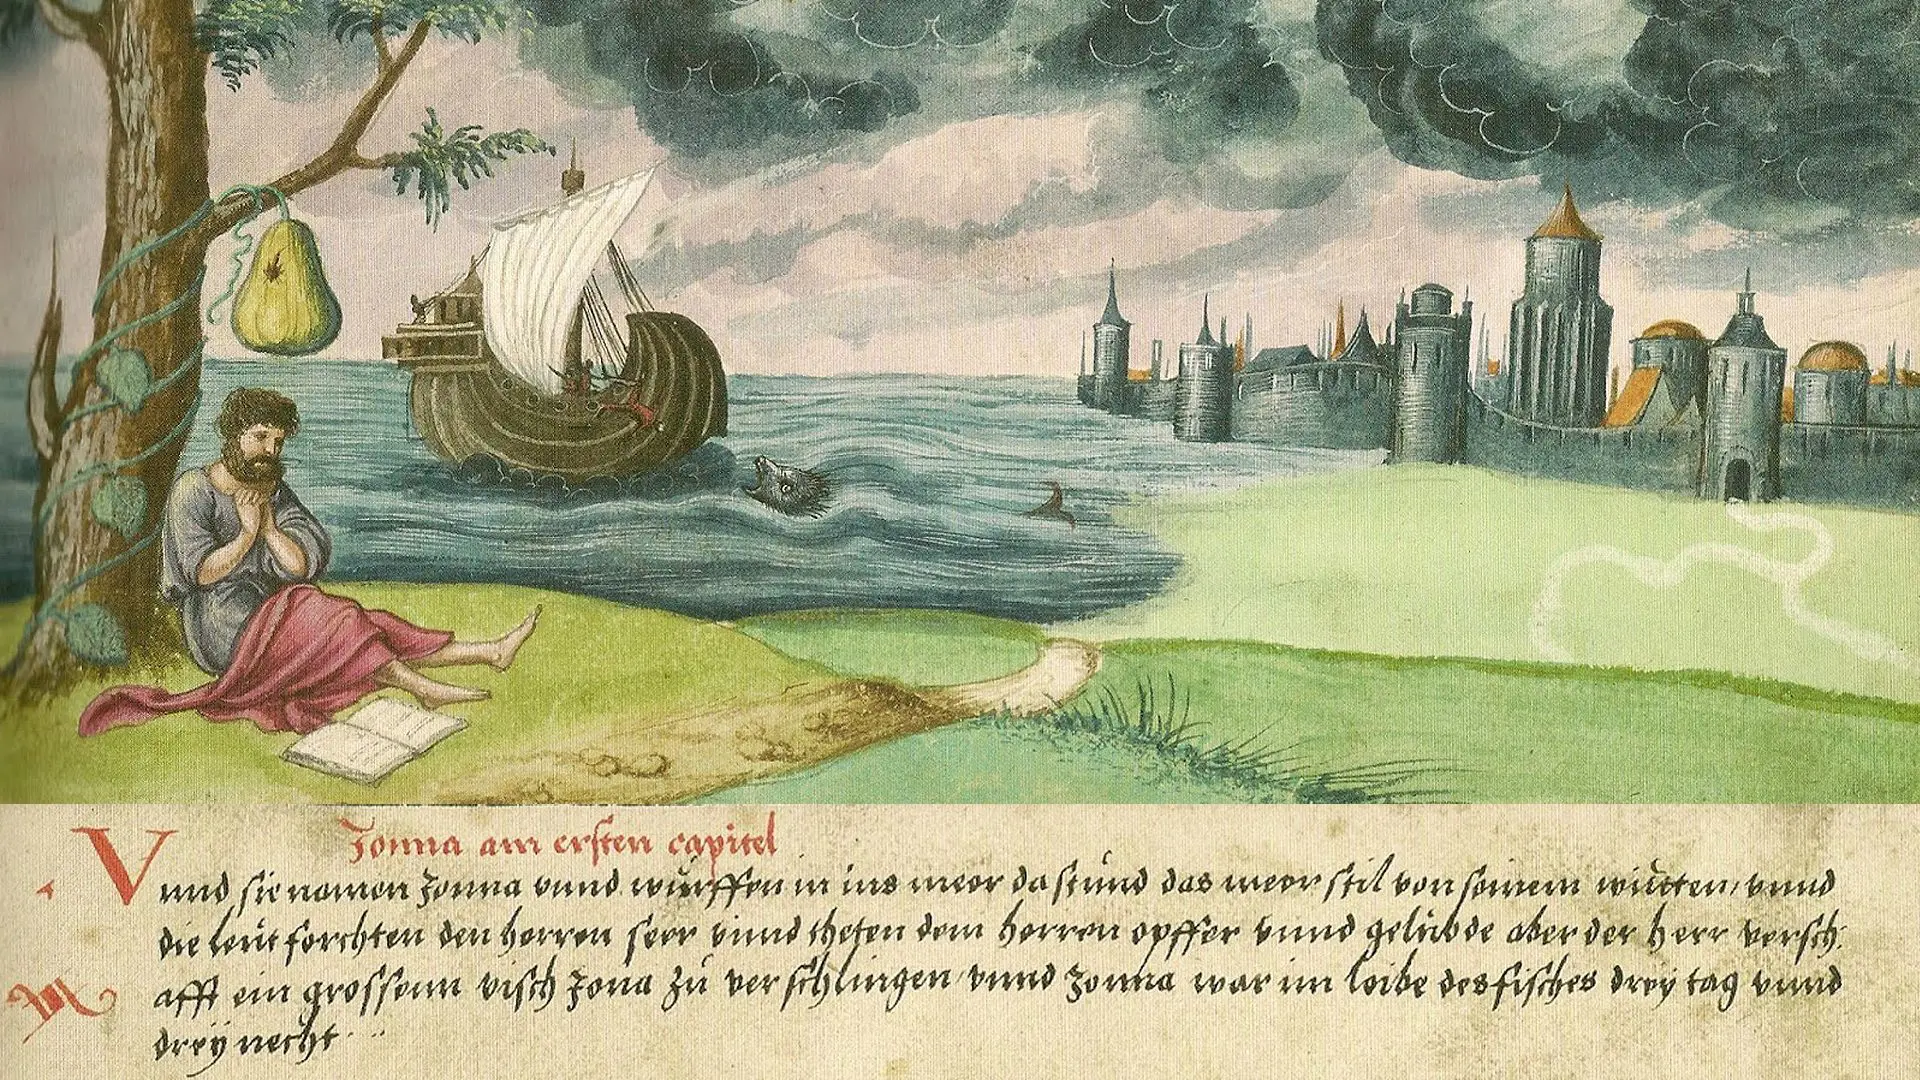 Jonna am ersten capitel
Vnnd sie namen Jonna vnnd wurffen in ins meer da stund das meer stil von seinem wütten, vnnd
die leut forchten den herren seer vnnd theten dem herren opffer vnnd gelubde aber der herr versch:
afft ein grossenn visch Jona zu verschlingen vnnd Jonna war im leibe des fisches drey tag vnnd
drey necht